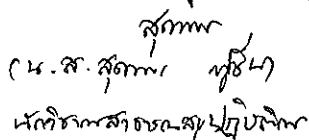 สุดาพร
(น.ส.สุดาพร
นักวิชาการสาธารณสุขปฏิบัติการ